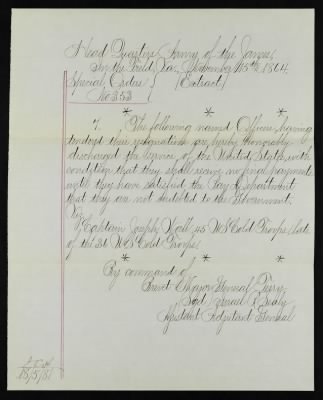 Head Quarters Army of the James,
In the Field, Va., November 15th 1864
Special Orders } (Extract)
No 353
* * *
7. The following named Officers having
tendered their resignations are hereby honorably
discharged the service of the United States with
condition that they shall receive no final payments
until they have satisfied the Pay Department
that they are not indebted to the Government.
Viz:
Captain Joseph Hall, 45 U S Cold Troops late
of the 36 U S Cold Troops
* * *
By command of
Brevet Major General Terry
Assistant Adjutant General
18/5/81